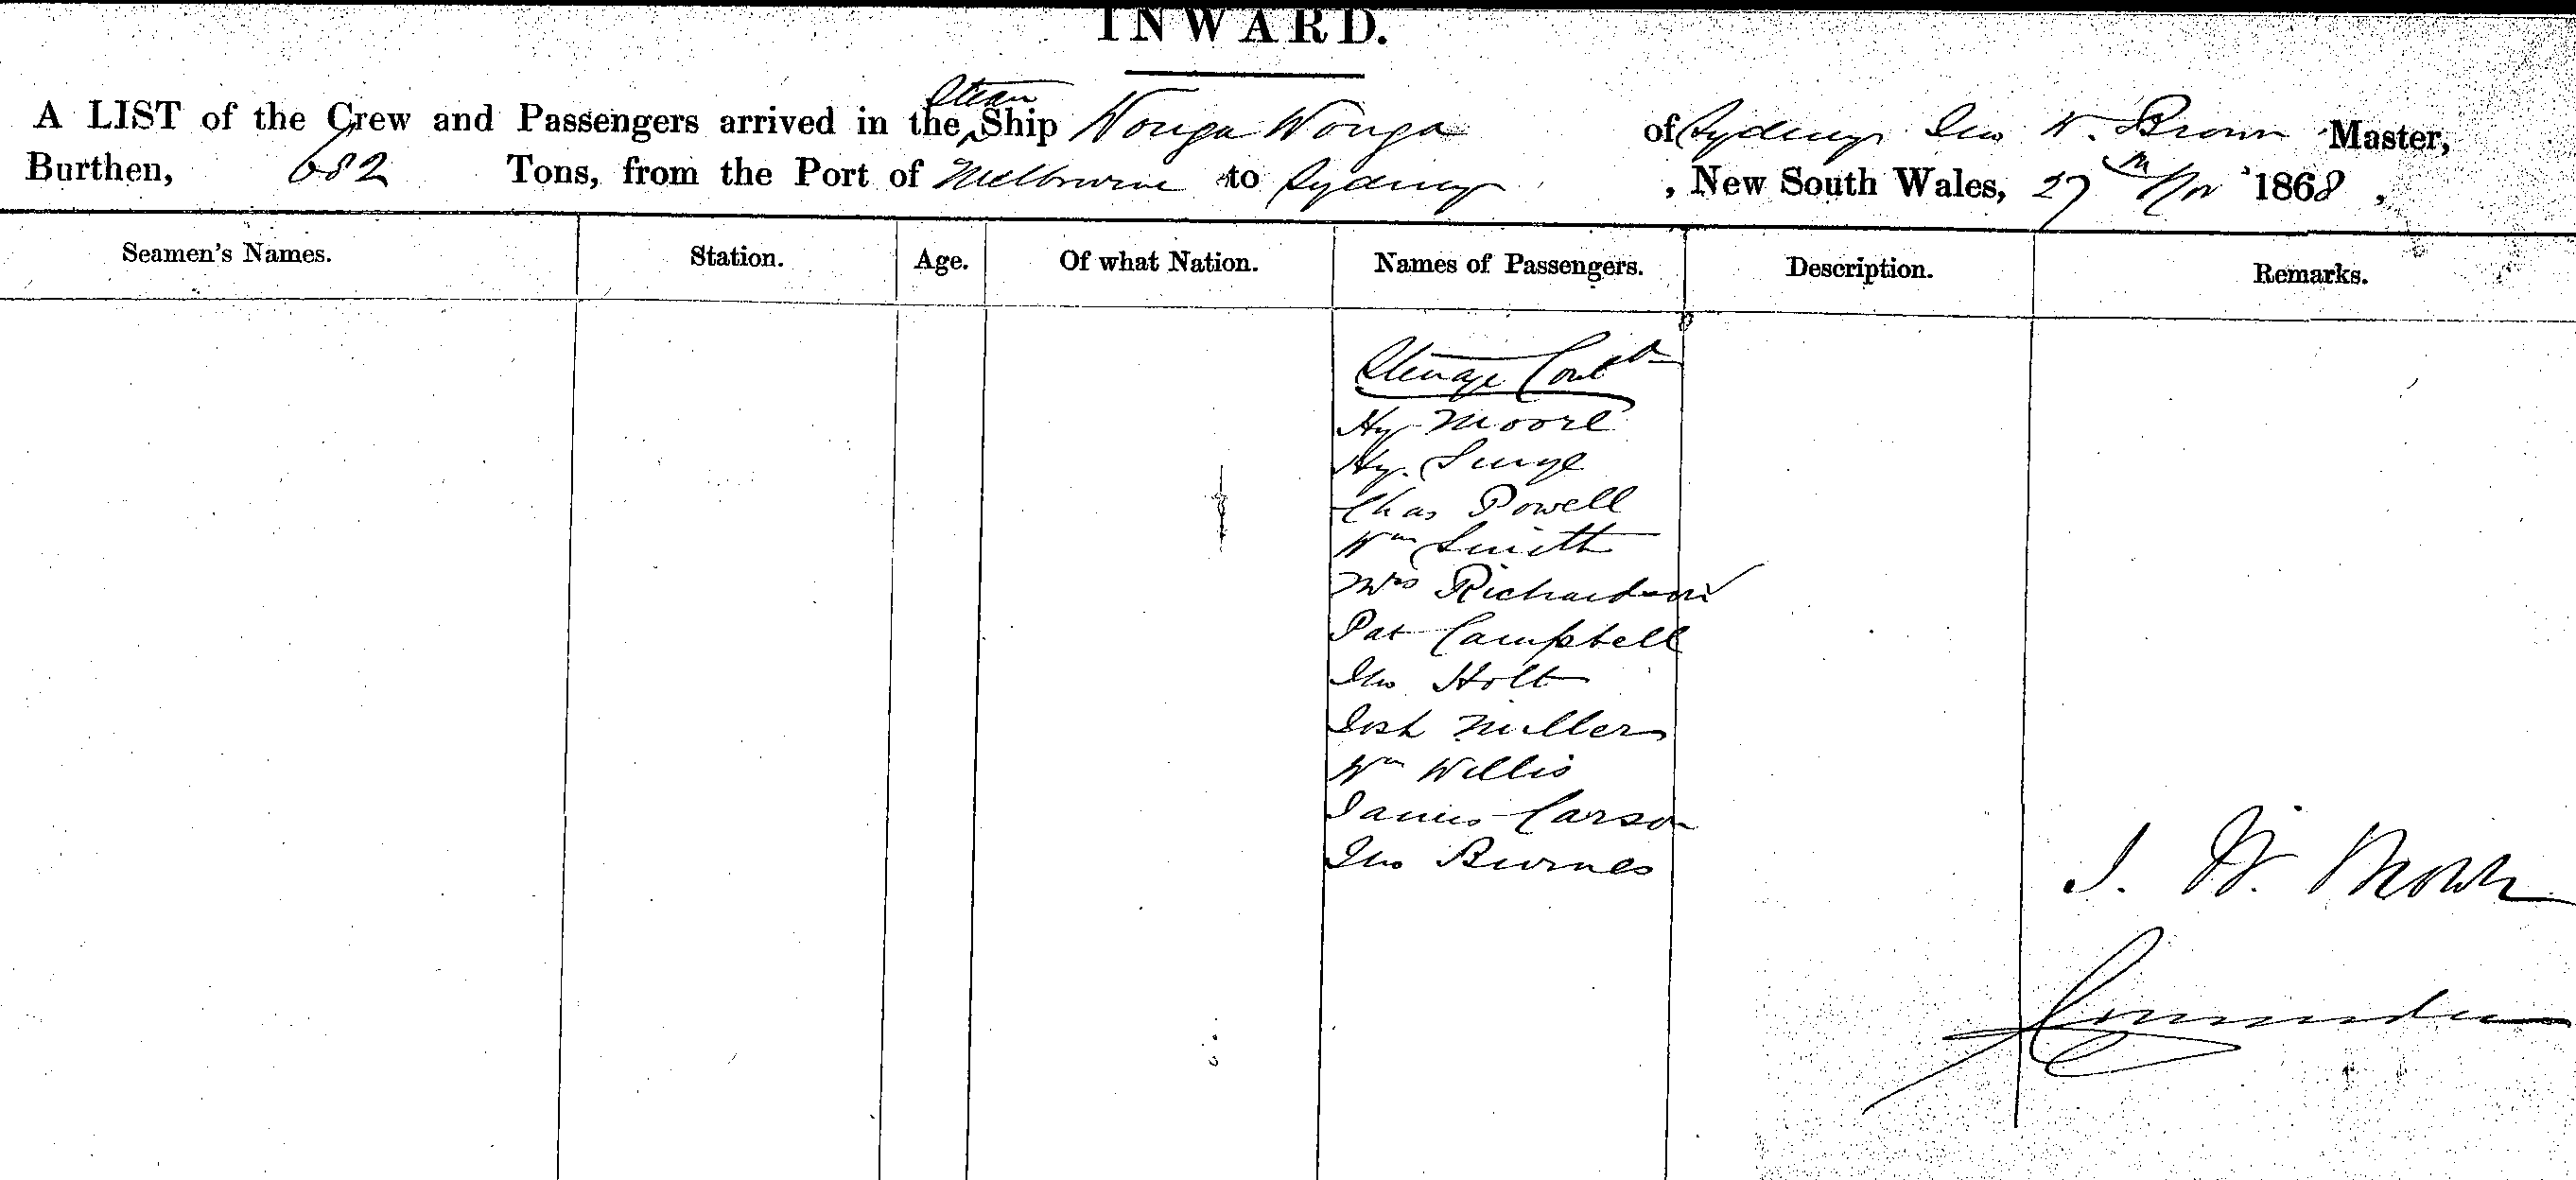 INWARD.
A LIST of the Crew and Passengers arrived in the Steam Ship Wonga Wonga of Sydney Jno W. Brown Master,
Burthen, 682 Tons, from the Port of Melbourne to Sydney , New South Wales, 27th Nov 1868 ,
Seamen's Names. Station. Age. Of what Nation. Names of Passengers. Description. Remarks.
Steerage Contd
Hy Moore
Hy.
Chas Powell
Wm Smith
Mrs Richardson
Pat Campbell
Jno Holt
Josh Miller
Wm Willis
James Carson
Jno Burnes
J. W. Brown
Commander